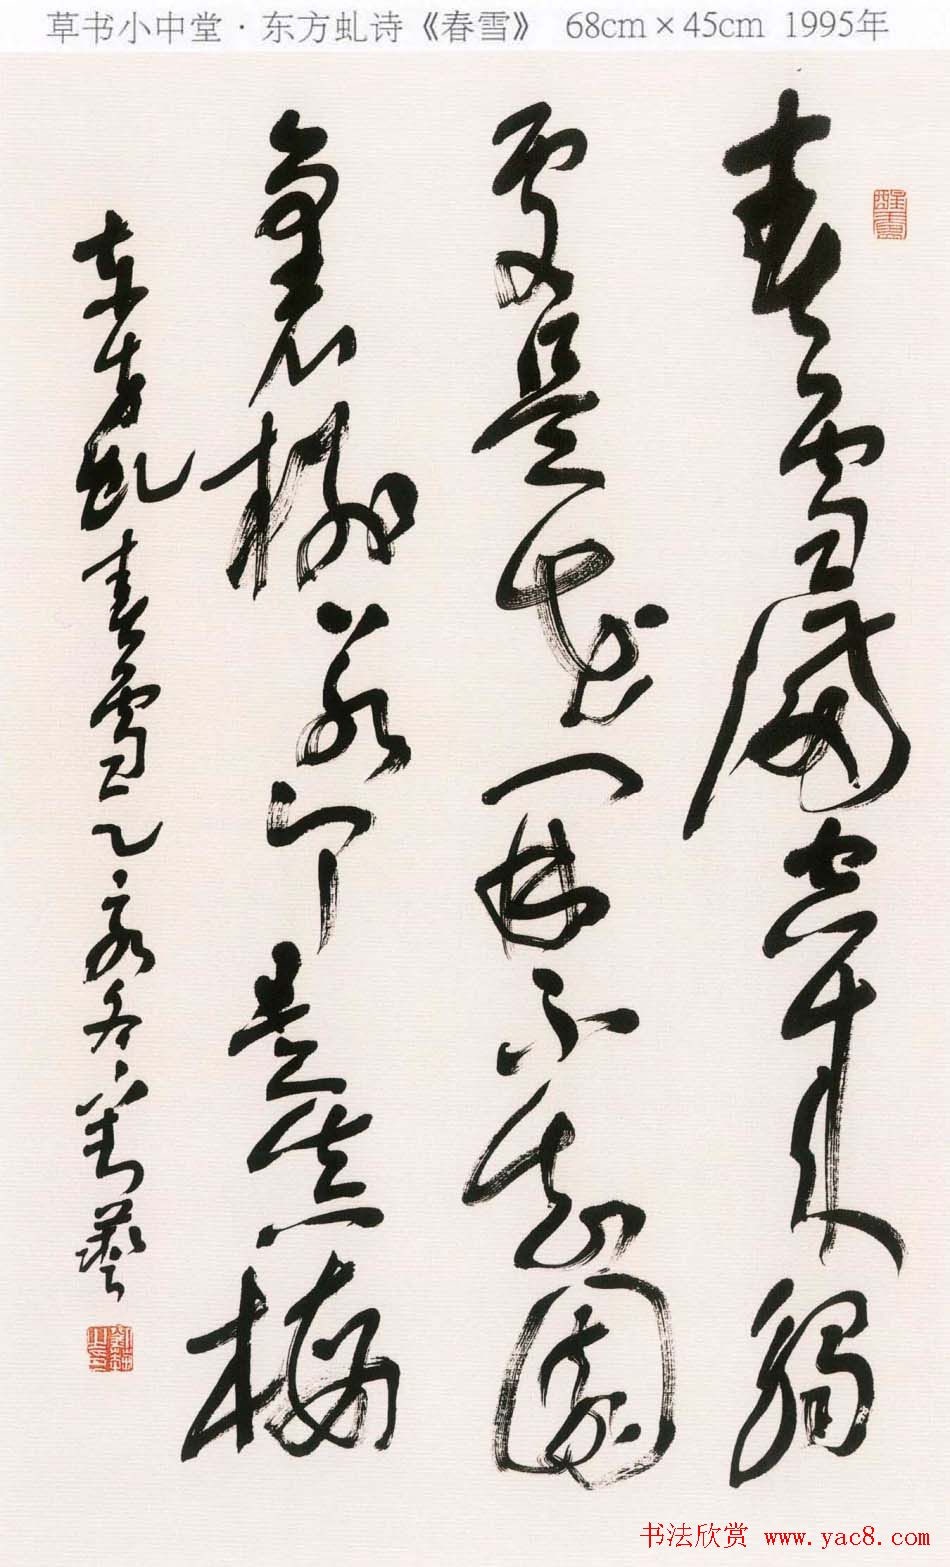 草书小中堂·东方虬诗《春雪》 68cm×45cm 1995年
春雪滿空来觸
處是花開不知園
裏樹若个是真梅
東方虬春雪乙亥冬劉藝
书法欣赏 www.yac8.com